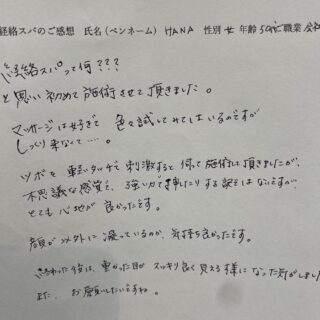 経絡スパのご感想 氏名(ペンネーム) HANA 性別 女 年齢 50代 職業 会社
経絡スパって何???
と思い初めて施術させて頂きました。
マッサージは好きで 色々試してみてはいるのですが
しっくり来なくて….
ツボを 重ねタッチで 刺激すると 伺って施術して頂きましたが、
不思議な感覚で、強い力で押したりする訳ではないですが
とても心地が良かったです。
顔が以外に凝っているのか、気持ち良かったです。
終わった後は、重かった目が スッキリ良く見える様に なった気がしまし
また、お願いしたいですね。